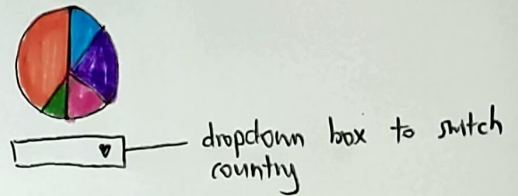 dropdown box to switch
country